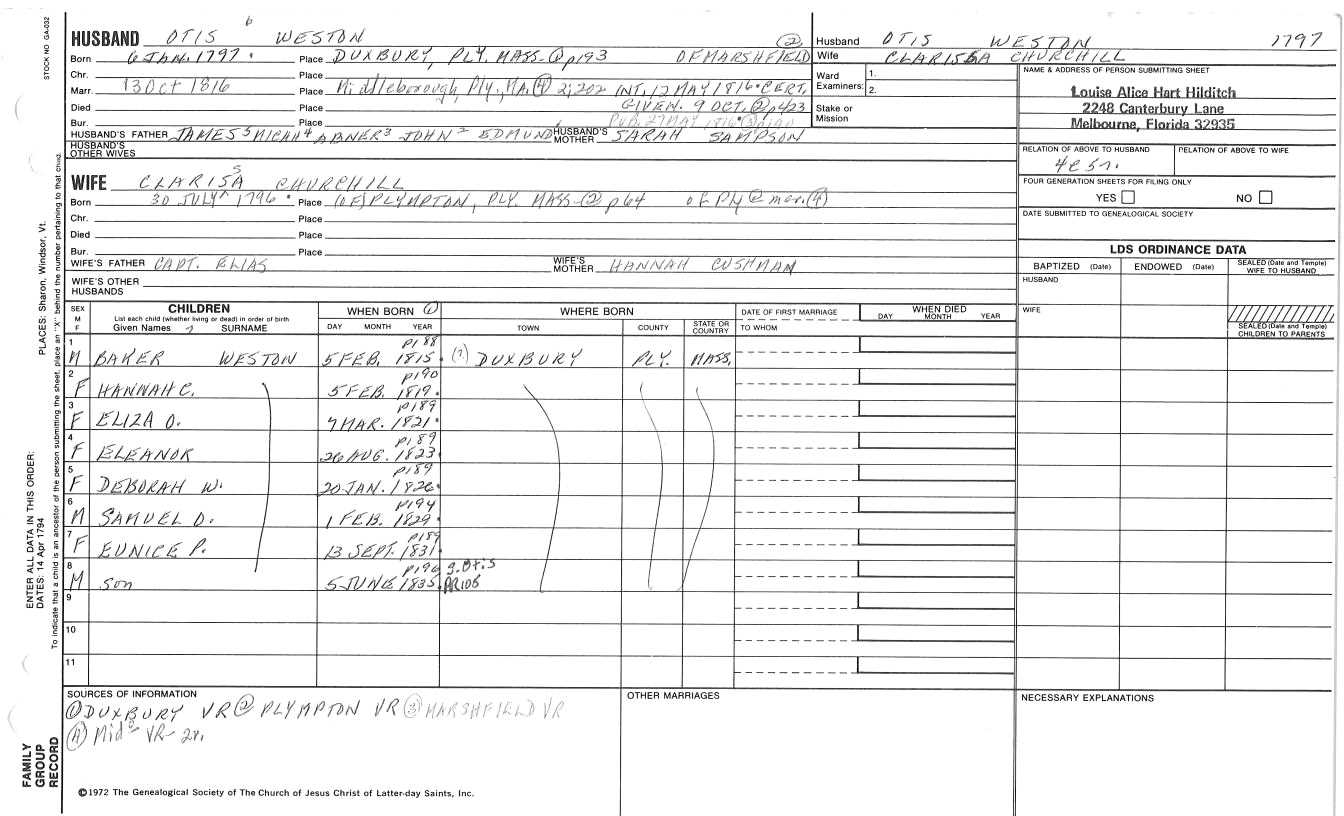 STOCK NO. GA-032
PLACES: Sharon, Windsor, Vt.
ENTER ALL DATA IN THIS ORDER:
DATES: 14 Apr 1794
To indicate that a child is an ancestor of the person submitting the sheet, place an "X" behind the number pertaining to that child.
FAMILY GROUP RECORD
6
HUSBAND OTIS WESTON
Born 6 JAN. 1797. Place DUXBURY, PLY. MASS. ① p193 ② OF MARSHFIELD
Chr. Place
Marr. 13 Oct 1816 Place Middleborough, Ply., MA. ④ 2;202 INT. 12 MAY 1816. CERT.
Died Place GIVEN. 9 OCT. ② p423
Bur. Place PUB. 27 MAY 1816
HUSBAND'S FATHER JAMES 5 MICAH 4 ABNER 3 JOHN 2 EDMUND HUSBAND'S MOTHER SARAH SAMPSON
HUSBAND'S OTHER WIVES
S
WIFE CLARISA CHURCHILL
Born 30 JULY 1796. Place (OF) PLYMPTON, PLY. MASS. ② p64 OF PLY @ mar. ④
Chr. Place
Died Place
Bur. Place
WIFE'S FATHER CAPT. ELIAS WIFE'S MOTHER HANNAH CUSHMAN
WIFE'S OTHER HUSBANDS
Husband OTIS WESTON 1797
Wife CLARISSA CHURCHILL
Ward Examiners: 1. 2.
Stake or Mission
NAME & ADDRESS OF PERSON SUBMITTING SHEET
Louise Alice Hart Hilditch
2248 Canterbury Lane
Melbourne, Florida 32935
RELATION OF ABOVE TO HUSBAND RELATION OF ABOVE TO WIFE
4c5r.
FOUR GENERATION SHEETS FOR FILING ONLY
YES NO
DATE SUBMITTED TO GENEALOGICAL SOCIETY
LDS ORDINANCE DATA
BAPTIZED (Date) ENDOWED (Date) SEALED (Date and Temple) WIFE TO HUSBAND
HUSBAND
WIFE
SEALED (Date and Temple) CHILDREN TO PARENTS
SEX M F CHILDREN WHEN BORN ① WHERE BORN DATE OF FIRST MARRIAGE WHEN DIED
List each child (whether living or dead) in order of birth
Given Names 7 SURNAME DAY MONTH YEAR TOWN COUNTY STATE OR COUNTRY TO WHOM DAY MONTH YEAR
p188
1 M BAKER WESTON 5 FEB. 1815. (?) DUXBURY PLY. MASS.
p190
2 F HANNAH C. 5 FEB. 1819.
p189
3 F ELIZA O. 7 MAR. 1821.
p189
4 F ELEANOR 26 AUG. 1823.
p189
5 F DEBORAH W. 20 JAN. 1826.
p194
6 M SAMUEL D. 1 FEB. 1829.
p189
7 F EUNICE P. 13 SEPT. 1831.
p196 g. Otis
8 M Son 5 JUNE 1835. PR108
9
10
11
SOURCES OF INFORMATION OTHER MARRIAGES NECESSARY EXPLANATIONS
① DUXBURY VR ② PLYMPTON VR ③ MARSHFIELD VR
④ Mid VR-
©1972 The Genealogical Society of The Church of Jesus Christ of Latter-day Saints, Inc.